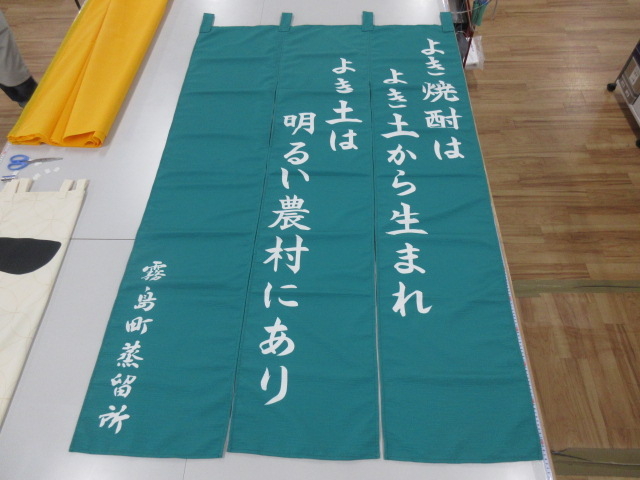 よき焼酎は
よき土から生まれ
よき土は
明るい農村にあり
霧島町蒸留所